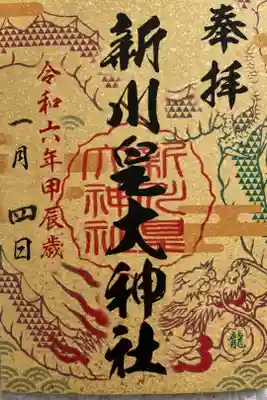 奉拝
新川皇大神社
令和六年甲辰歳
一月四日
新川皇
大神社
龍